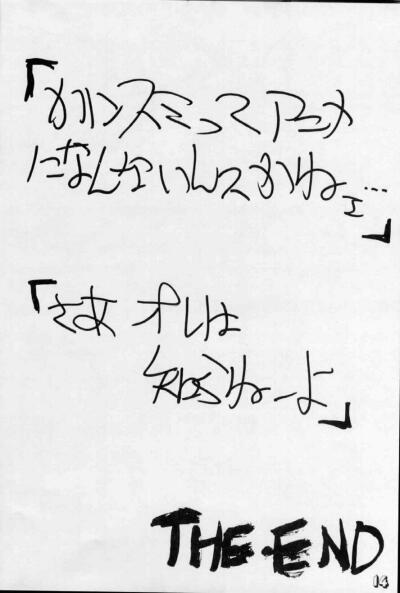 「ガンスミってアニメ
になんないんスかねェ…
」
「さあ オレは
知らねーよ」
THE・END
14